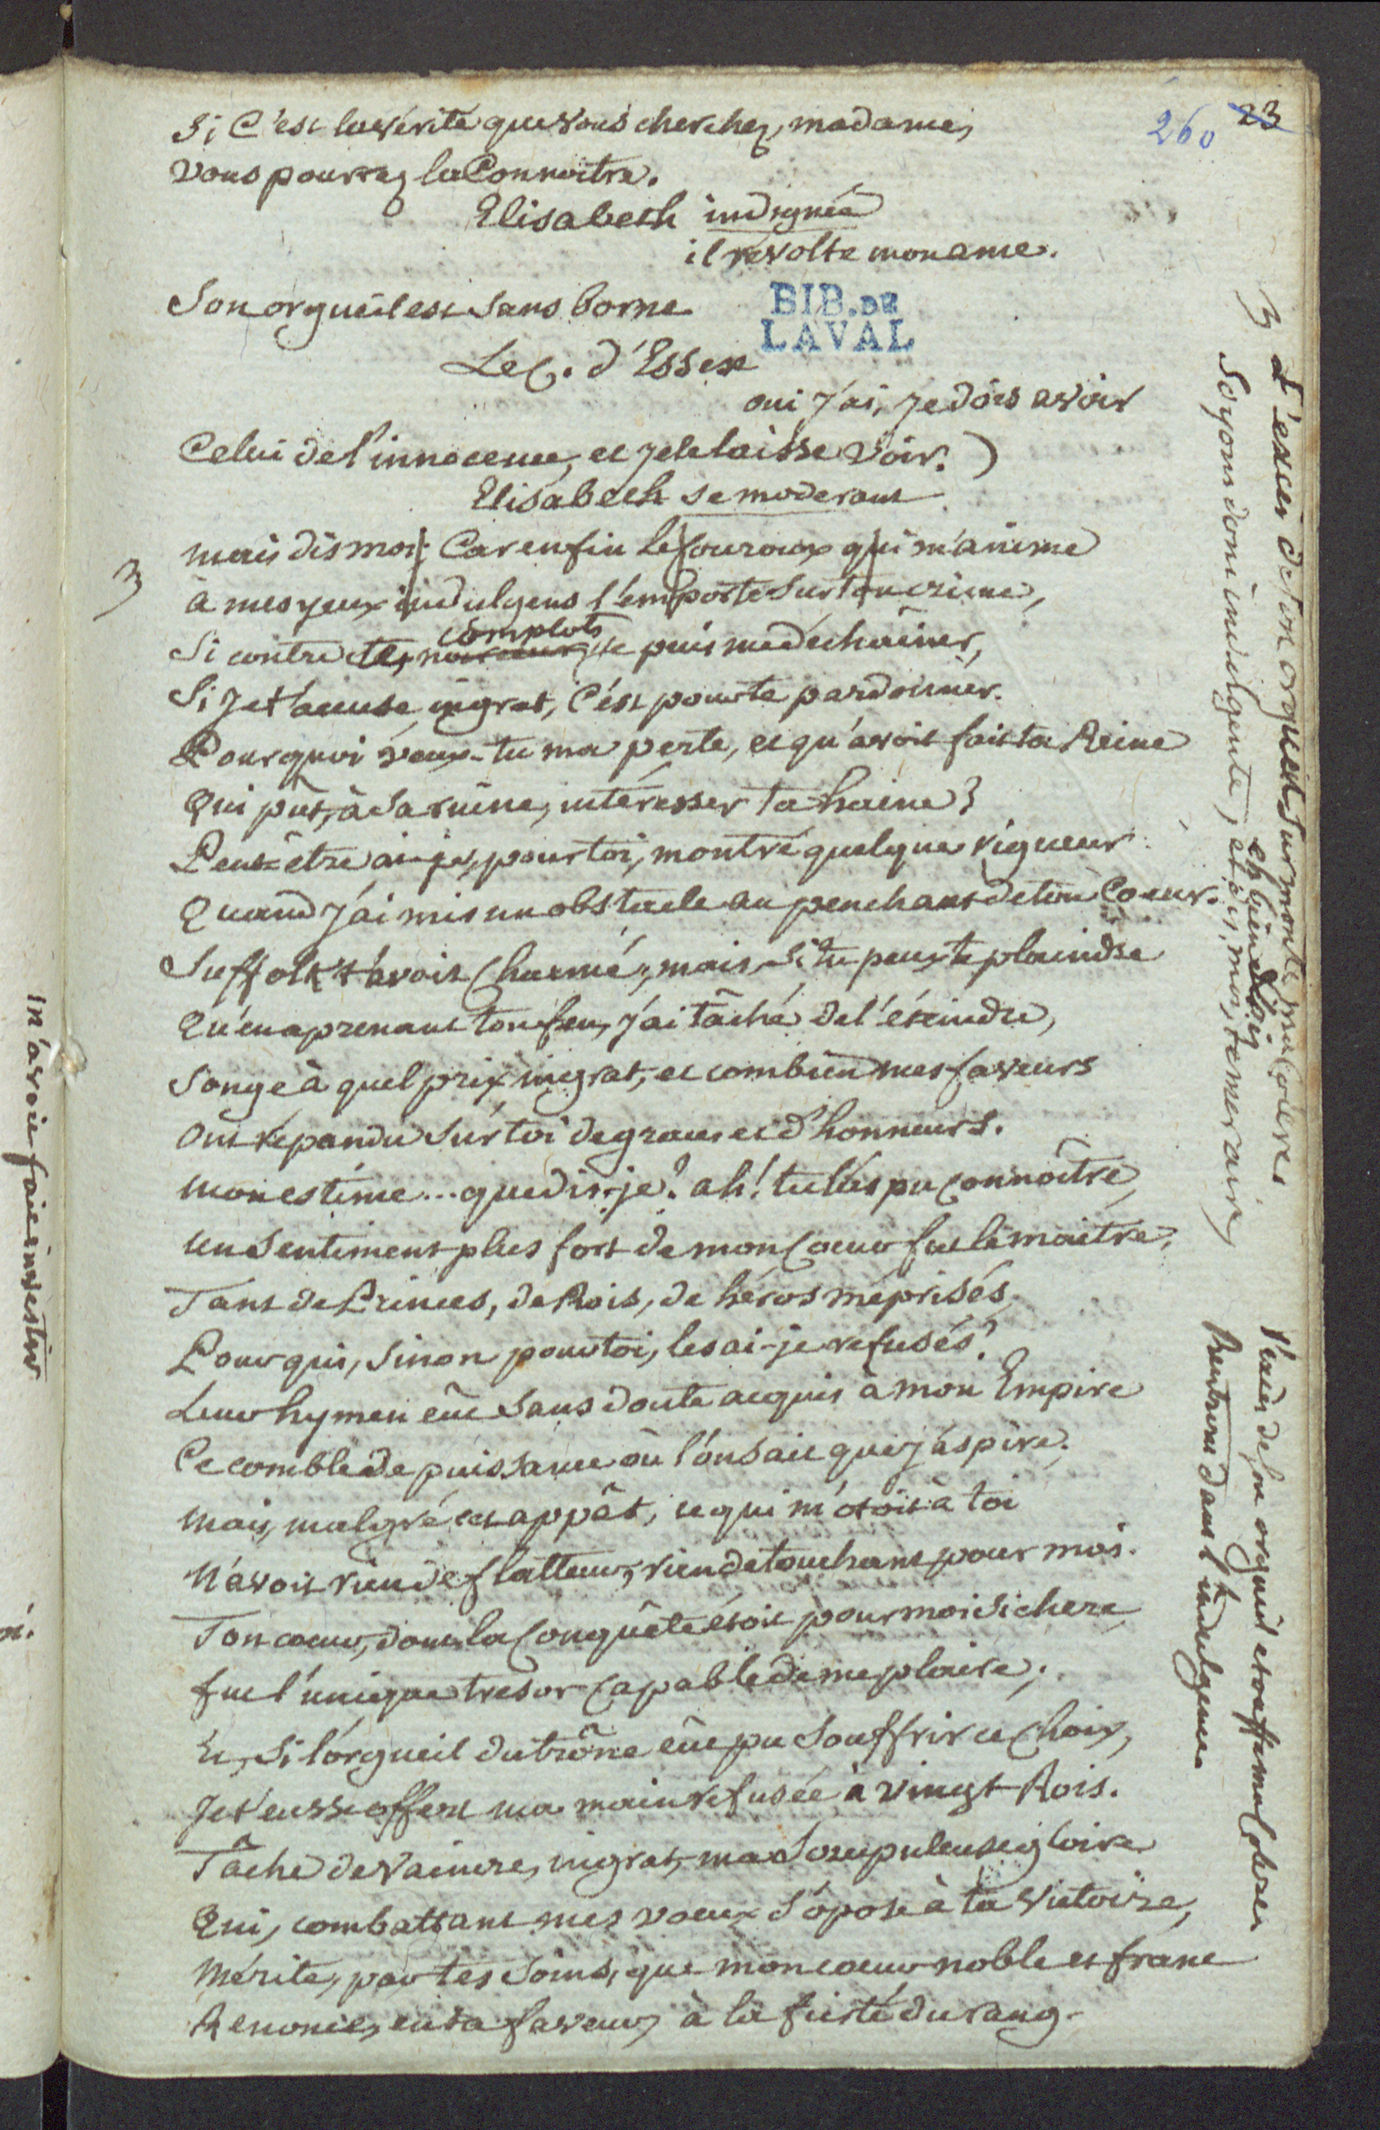 23
260
Si C'est la vérité que vous cherchez, madame,
Vous pourrez la Connoitre.
Elisabeth indignée
il révolte mon ame.
Son orgueil est sans borne
BIB. DE
LAVAL
Le C. d'Essex
oui j'ai, je dois avoir
Celui de l'innocence, et je le laisse voir. )
Elisabeth se moderant
mais dis moi; Car enfin le couroux qui m'anime
à mes yeux indulgens l'emporte sur ton crime,
complots
Si contre tes noirceurs je puis me déchaîner,
Si je t'acuse, ingrat, C'est pour te pardonner.
Pourquoi veux-tu ma perte, et qu'avoit fait ta Reine
Qui pût, à sa ruine, intéresser ta haine?
Peut-être ai-je, pour toi, montré quelque rigueur
Quand j'ai mis un obstacle au penchant de ton Coeur.
Suffolk t'avoit Charmé; mais, si tu peux te plaindre
Qu'en aprenant ton feu, j'ai tâché de l'éteindre,
Songe à quel prix, ingrat, et combien mes faveurs
Ont répandu sur toi de graces et d'honneurs.
Mon estime... que dis-je? ah! tu l'as pu connoître,
Un sentiment plus fort de mon coeur fut le maitre,
Tant de Princes, de Rois, de héros méprisés,
Pour qui, sinon pour toi, les ai-je refusés?
Leur hymen eût sans doute acquis à mon Empire
Ce comble de puissance où l'on sait que j'aspire;
Mais, malgré cet appât, ce qui m'otoit à toi
N'avoit rien de flatteur, rien de touchant pour moi.
Ton coeur, dont la Conquête étoit pour moi si chere,
fut l'unique tresor capable de me plaire;
Et, si l'orgueil du trône eût pu souffrir ce Choix,
Je t'eusse offert ma main refusée à vingt Rois.
Tâche de vaincre, ingrat, ma scrupuleuse gloire
Qui, combattant mes voeux s'opose à ta victoire,
Mérite, par tes soins, que mon coeur noble et franc
Renonce, en ta faveur, à la fierté du rang.
L'excès de ton orgueil surmonte ma colere
eh bien dis
Soyons donc indulgente, et dis moi, temeraire,
l'excès de son orgueil etouffe ma colere
Rentrons dans l'indulgence
m'avoir fait investir